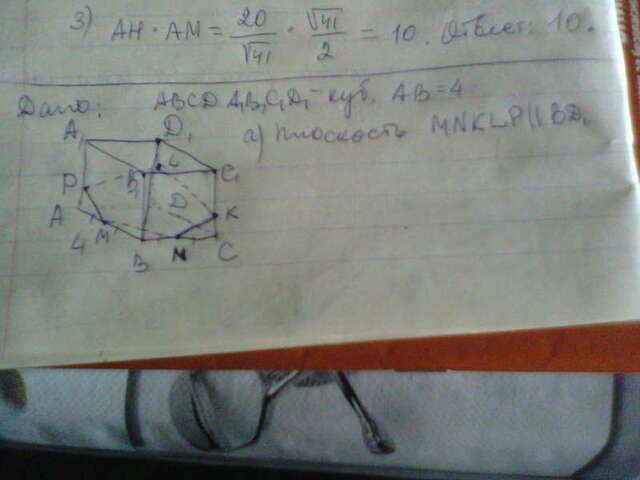 3) AH · AM = 20/√41 · √41/2 = 10. Ответ: 10.
Дано: ABCD A₁B₁C₁D₁ - куб, AB = 4
а) Плоскость MNKLP || BD₁
A₁ D₁
L
B₁ C₁
P
D K
A
4 M
B N C